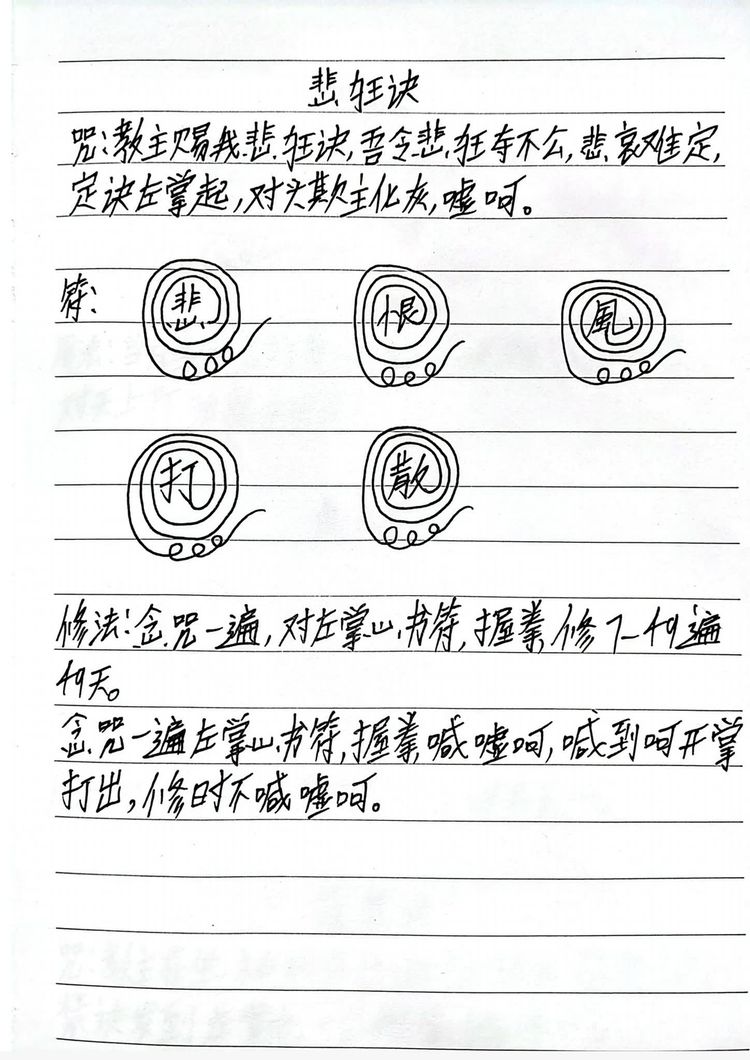 悲狂诀
咒:教主赐我悲狂诀,吾令悲狂夺不公,悲哀难定,
定诀左掌起,对头欺主化灰,嘘呵。
符:
悲 恨 風
打 散
修法:念咒一遍,对左掌心书符,握拳,修7—49遍
49天。
念咒一遍左掌心书符,握拳,喊嘘呵,喊到呵开掌
打出,修时不喊嘘呵。